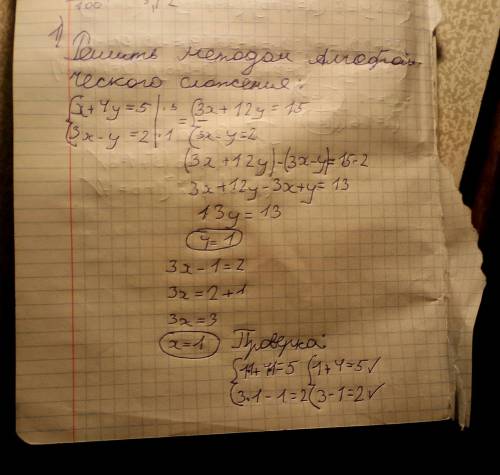 1) Решить методом Алгебраи-
ческого сложения:
{x+4y=5 | ·3 = {3x+12y=15
{3x-y=2 | ·1 {3x-y=2
(3x+12y)-(3x-y)=15-2
3x+12y-3x+y=13
13y=13
y=1
3x-1=2
3x=2+1
3x=3
x=1 Проверка:
{1+4·1=5 {1+4=5✓
{3·1-1=2 {3-1=2✓